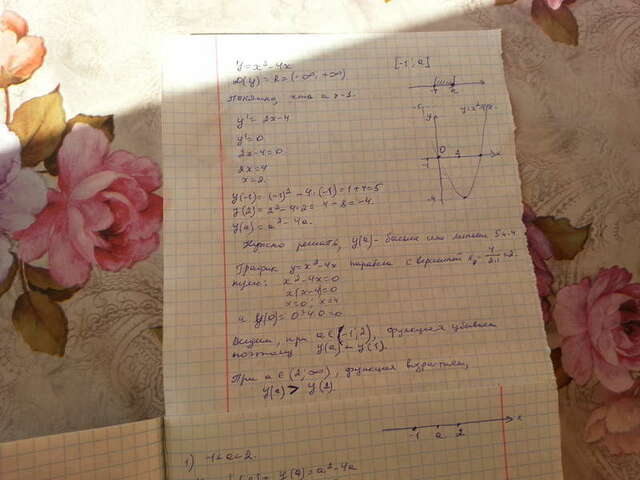 y=x²-4x [-1; a]
D(y)=R=(-∞; +∞)
Понятно, что a > -1.
-1 a
y'=2x-4
y'=0
2x-4=0
2x=4
x=2.
y y=x²-4x
0 2 x
-1
-4
y(-1)=(-1)²-4·(-1)=1+4=5
y(2)=2²-4·2=4-8=-4.
y(a)=a²-4a.
Нужно решить, y(a)- больше или меньше 5 и -4.
График y=x²-4x парабола с вершиной x₀=4/2·1=2.
нули: x²-4x=0
x(x-4)=0
x=0; x=4
и y(0)=0²-4·0=0
Видим, при a∈(-1,2), функция убывает
поэтому
При a∈(2,∞), функция возрастает,
y(a) > y(2)
-1 a 2 x
1) -1<a<2.
y(a)=a²-4a